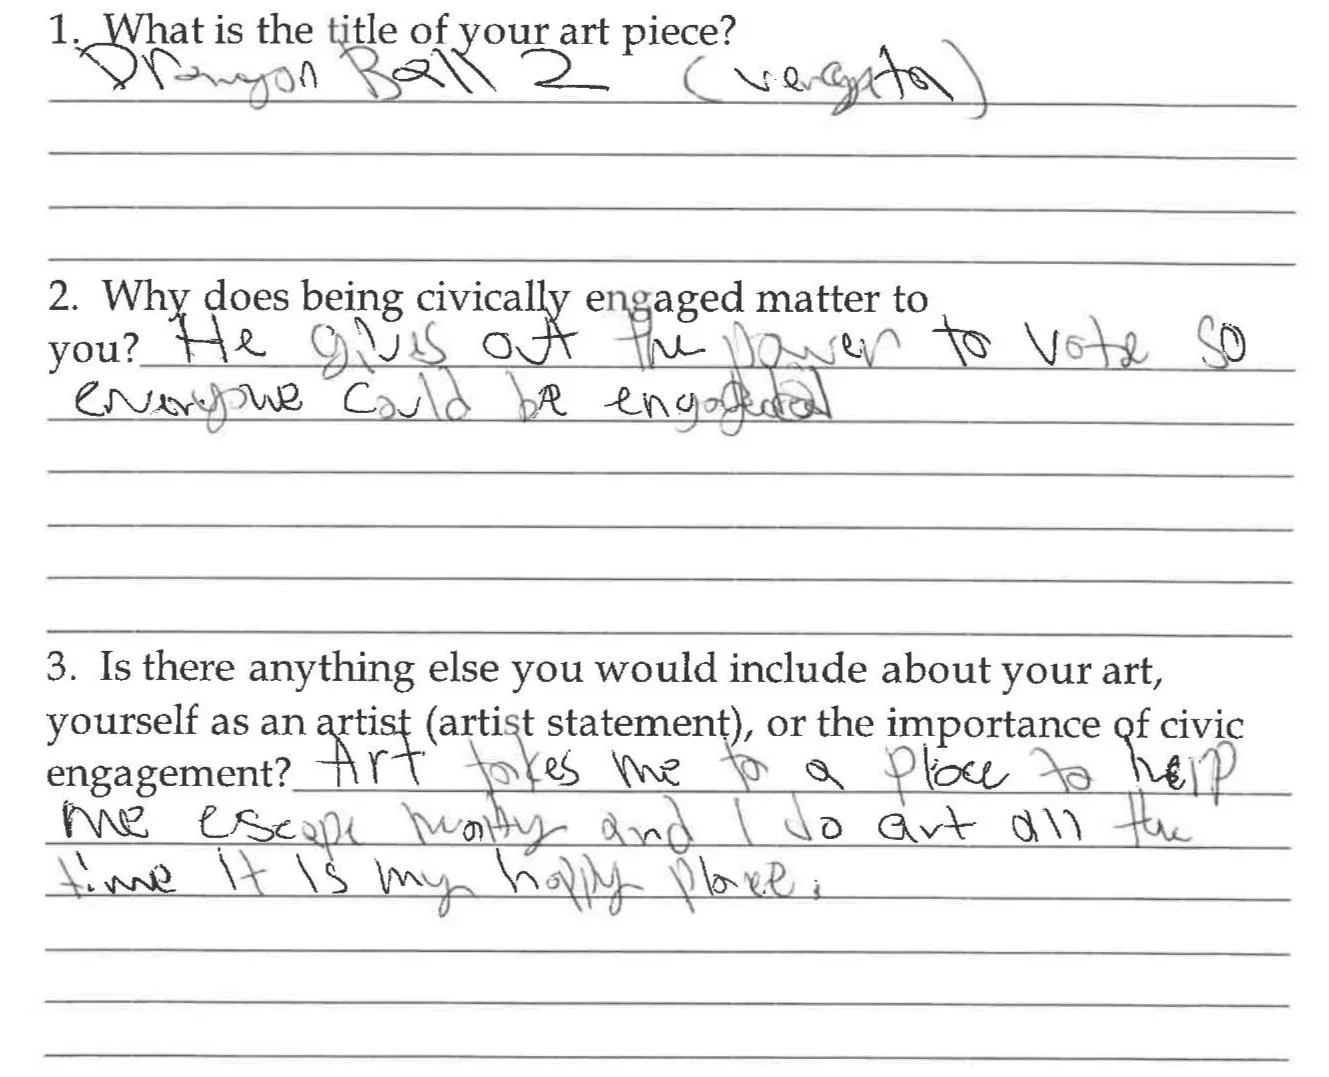 1. What is the title of your art piece?
Drangon Ball 2 (
2. Why does being civically engaged matter to
you? He gives out the power to vote so
everyone could be
3. Is there anything else you would include about your art,
yourself as an artist (artist statement), or the importance of civic
engagement? Art takes me to a place to help
me escape and I do art all the
time it is my happy place.